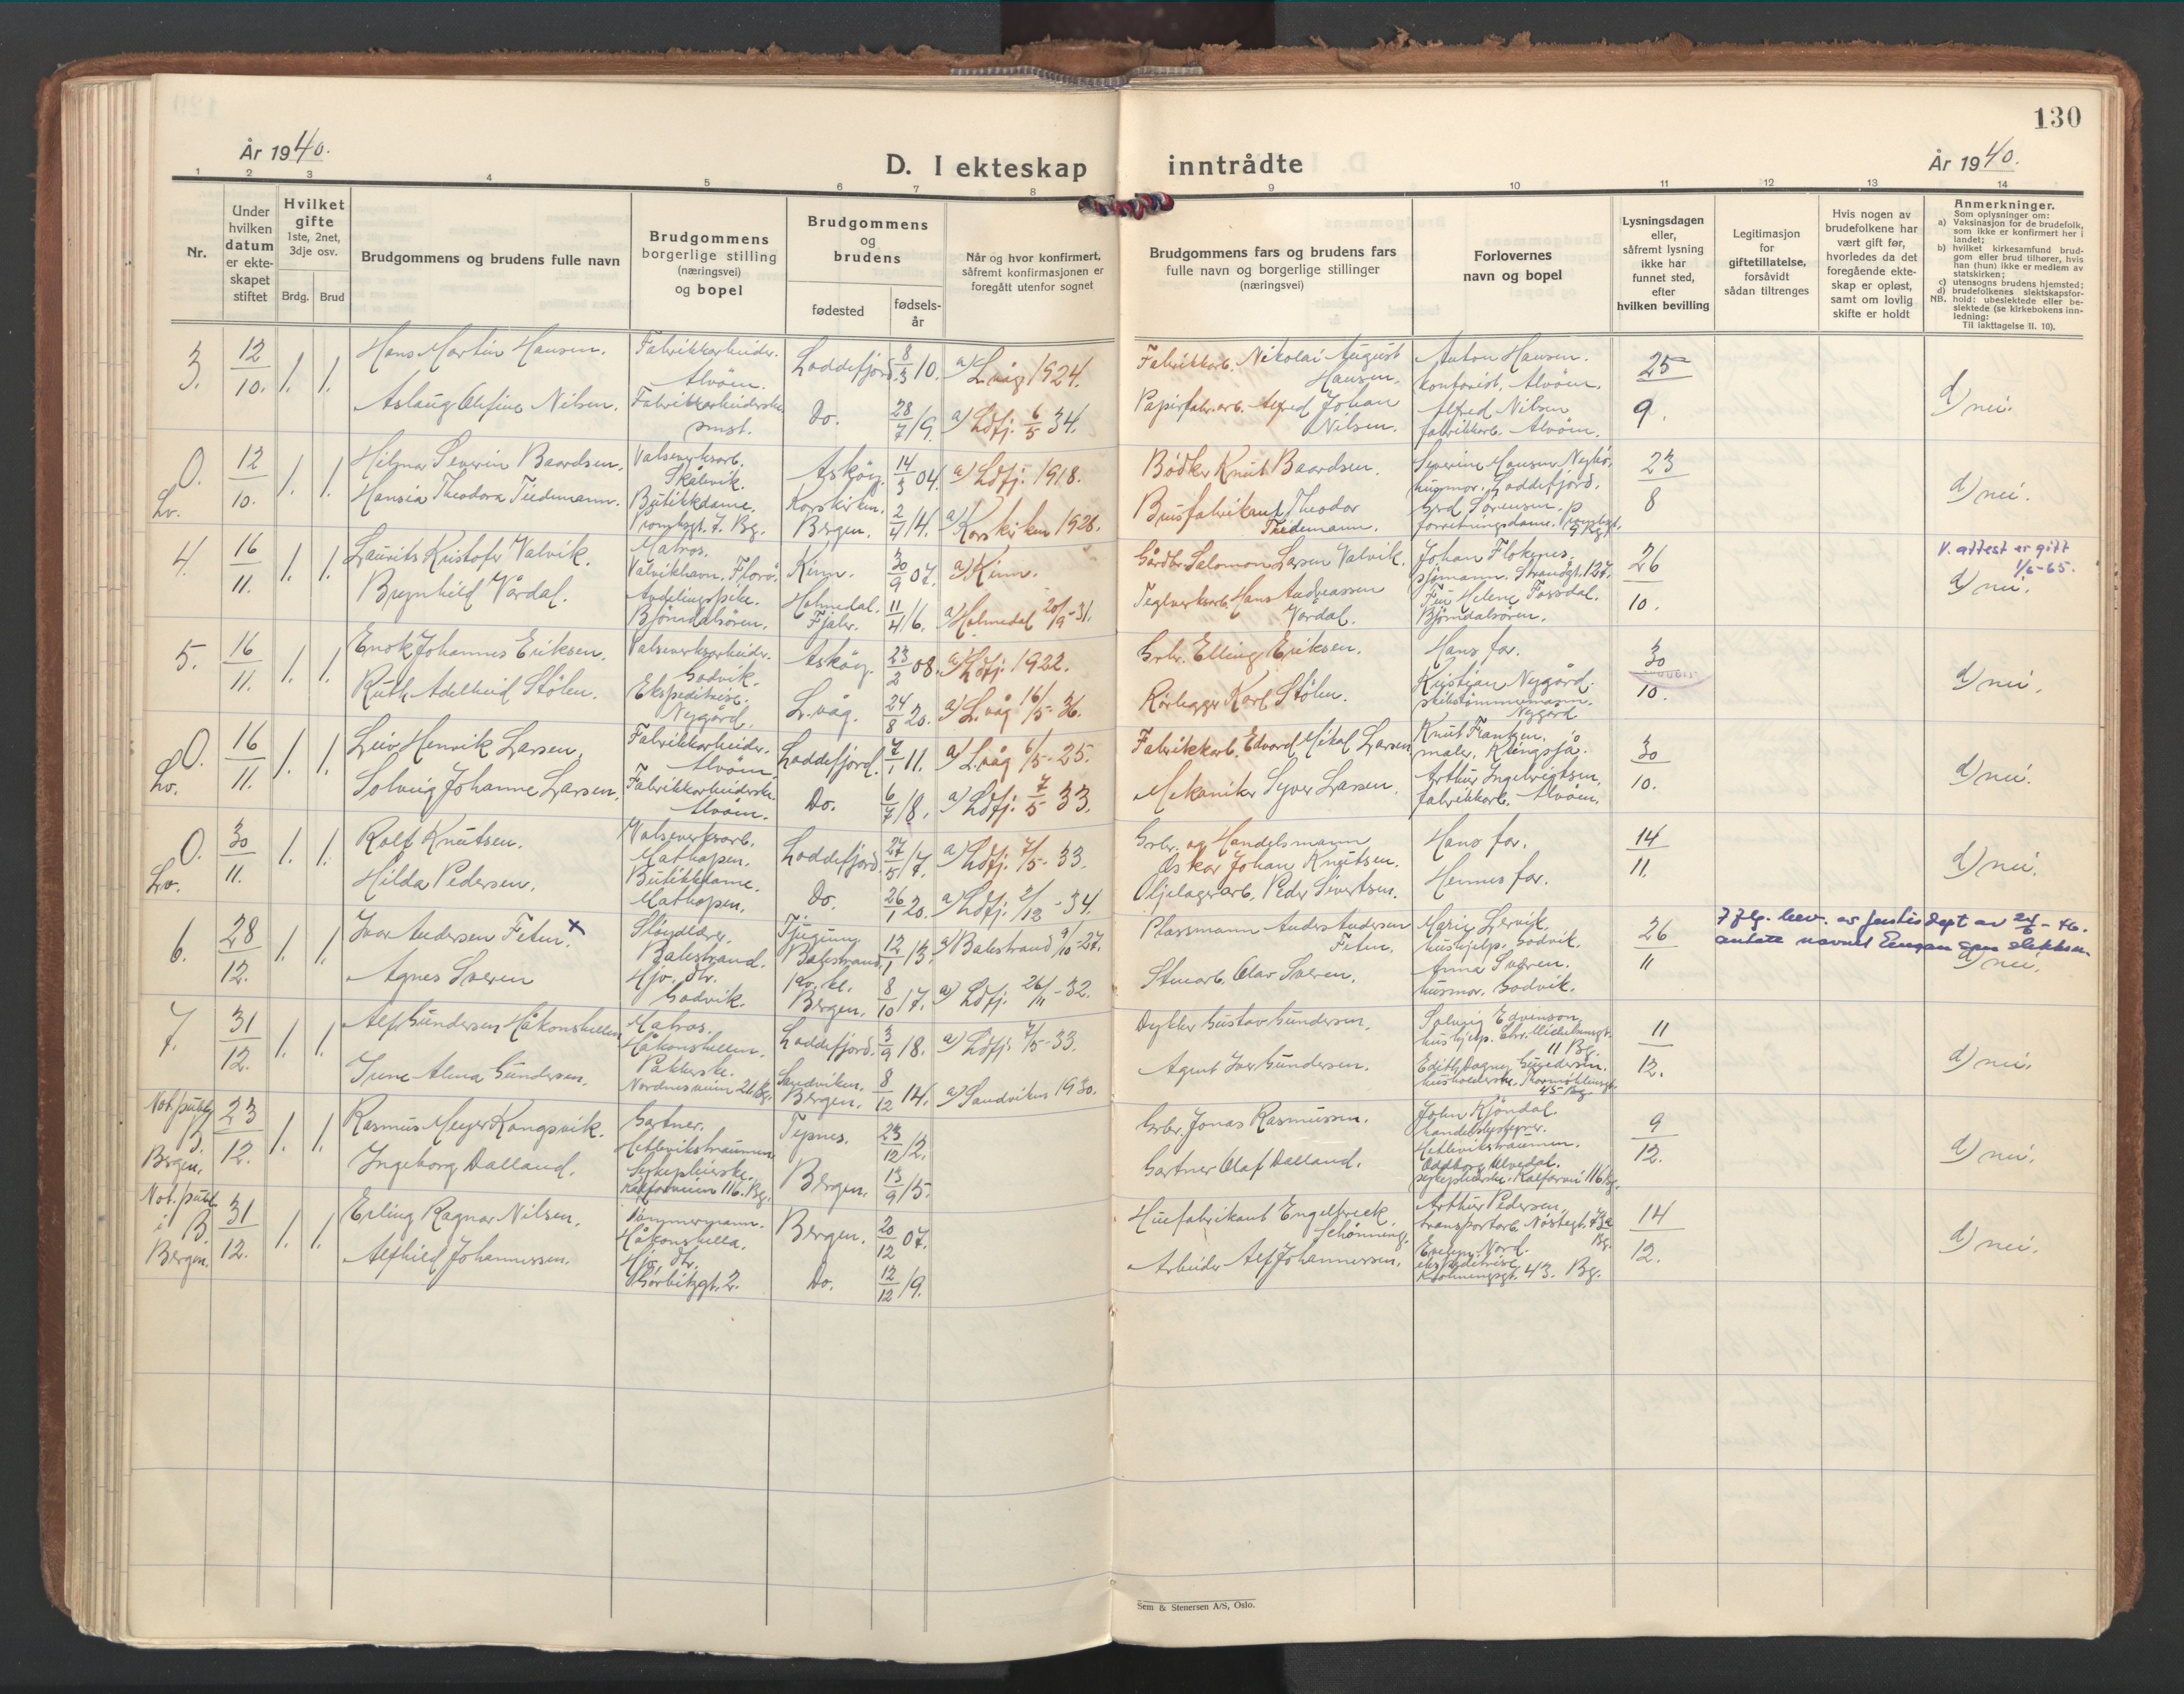 130
År 1940.
D. I ekteskap inntrådte
År 1940.
1 2 3 4 5 6 7 8 9 10 11 12 13 14
Nr.
Under hvilken datum er ekteskapet stiftet
Hvilket gifte
1ste, 2net, 3dje osv.
Brdg. Brud
Brudgommens og brudens fulle navn
Brudgommens borgerlige stilling (næringsvei) og bopel
Brudgommens og brudens
fødested
fødsels-år
Når og hvor konfirmert, såfremt konfirmasjonen er foregått utenfor sognet
Brudgommens fars og brudens fars fulle navn og borgerlige stillinger (næringsvei)
Forlovernes navn og bopel
Lysningsdagen eller, såfremt lysning ikke har funnet sted, efter hvilken bevilling
Legitimasjon for giftetillatelse, forsåvidt sådan tiltrenges
Hvis nogen av brudefolkene har vært gift før, hvorledes da det foregående ekteskap er opløst, samt om lovlig skifte er holdt
Anmerkninger.
Som oplysninger om:
a) Vaksinasjon for de brudefolk, som ikke er konfirmert her i landet;
b) hvilket kirkesamfund brudgom eller brud tilhører, hvis han (hun) ikke er medlem av statskirken;
c) utensogns brudens hjemsted;
d) brudefolkenes slektskapsforhold: ubeslektede eller beslektede (se kirkebokens innledning;
NB.
Til iakttagelse II. 10).
3. 12/10. 1. 1. Hans Martin Hansen. Fabrikkarbeider. Alvøen. Loddefjord 8/3 10. a) L.våg 1924. Fabrikkarb. Nikolai August Hansen. Anton Hansen. kontorist, Alvøen. 25/9. d) nei.
Aslaug Olefine Nilsen. Fabrikkarbeiderske smst. Do. 28/7 19. a) Ldfj. 6/5 34. Papirfabr.arb. Alfred Johan Nilsen. Alfred Nilsen fabrikkarb. Alvøen.
O. Lv. 12/10. 1. 1. Hilmar Severin Baardsen. Valseverksarb. Skålevik. Askøy. 14/3 04. a) Ldfj. 1918. Bødker Knut Baardsen. Severine Hansen Nygård, husmor, Loddefjord. 23/8 d) nei.
Hansia Theodora Tiedemann. Butikkdame. Korskirken. Bergen. 2/4 14. a) Korskirken 1928. Brusfabrikant Theodor Tiedemann. forretningsdame.
4. 16/11. 1. 1. Laurits Kristofer Valvik. Matros. Valvikhavn, Florø. Kinn. 30/9 07. a) Kinn. Gårdbr. Salomon Larsen Valvik. Johan Flokenes. sjømann. Strandgt. 127. 26/10. V. attest er gitt 1/6-65. d) nei.
Brynhild Vårdal. Avdelingspike. Bjørndalsøren. Holmedal. Fjaler. 11/4 16. a) Holmedal 20/9-31. Teglverksarb. Hans Andreassen Vårdal. Helene Forsdal. Bjørndalsøren.
5. 16/11. 1. 1. Enok Johannes Eriksen. Valseverksarbeider. Godvik. Askøy. 23/2 08. a) Ldfj. 1922. Grbr. Elling Eriksen. Hans far. 30/10. d) nei.
Ruth Adelheid Stølen. Ekspeditrise. Nygård. L.våg. 24/8 20. a) L.våg 16/5-36. Rørlegger Karl Stølen. Kristian Nygård. skibstømmermann. Nygård
O. Lv. 16/11. 1. 1. Leiv Henrik Larsen. Fabrikkarbeider. Alvøen. Loddefjord. 7/1 11. a) L.våg 6/5-25. Fabrikkarb. Edvard Mikal Larsen Knut Frantzen, maler, Klingsjå. 30/10. d) nei.
Solveig Johanne Larsen. Fabrikkarbeiderske. Alvøen. Do. 6/7 18. a) Ldfj. 7/5 33. Mekaniker Syver Larsen. Arthur Ingebrigtsen. fabrikkarb. Alvøen.
O. Lv. 30/11. 1. 1. Rolf Knutsen. Valseverksarb. Mathopen. Loddefjord. 27/5 17. a) Ldfj. 7/5-33. Grbr. og Handelsmann Oskar Johan Knutsen. Hans far. 14/11. d) nei.
Hilda Pedersen. Butikkdame. Mathopen. Do. 26/1 20. a) Ldfj. 2/12-34. Oljelagerarb. Peder Sivertsen. Hennes far.
6. 28/12. 1. 1. Ivar Andersen Fetun. x Sløydlærer. Balestrand. Tjugum Balestrand. 12/1 13. a) Balestrand 9/10 27. Plassmann Anders Andersen Fetun. Marie Lervik. hushjelp. Godvik. 26/11 d) nei.
Agnes Sværen Hjv. dtr. Godvik. Bergen. 8/10 17. a) Ldfj. 26/11-32. Stuearb. Olav Sværen. Anna Sværen. husmor. Godvik.
7. 31/12. 1. 1. Alf Gundersen Håkonshellen Matros. Håkonshellen. Loddefjord. 3/9 18. a) Ldfj. 7/5-33. Dykker Gustav Gundersen. Solveig Edvenson, hushjelp. 11 Bg. 11/12. d) nei.
Irene Alma Gundersen. Pakkerske. Nordnesveien 21 Bg. Sandviken. Bergen. 8/12 14. a) Sandviken 1930. Agent Iver Gundersen. Edith Dagny Gundersen. husholderske. 45 Bg.
Not. publ. B. Bergen. 23/12. 1. 1. Rasmus Meyer Kongsvik. Gartner. Hetlevikstraumen. Tysnes. 23/12 12. Grbr. Jonas Rasmussen. John Kjøndal. handelsbestyrer. Hetlevikstraumen. 9/12. d) nei.
Ingeborg Dalland. Sykepleierske. Kalfarveien 116. Bg. Bergen. 13/9 15. Gartner Olaf Dalland. Oddborg Ulvedal. sykepleierske. Kalfarvei 116 Bg.
Not. publ. i B. Bergen. 31/12. 1. 1. Erling Ragnar Nilsen. Tømmermann. Håkonshella. Bergen. 20/12 07. Huefabrikant Engelbreck Schønning. Arthur Pedersen, transportarb. Nøstegt. 73a Bg. 14/12. d) nei.
Alfhild Johannessen. Hjv. dtr. Do. 12/12 19. Arbeider Alf Johannessen. Nord. ekspeditrise. 43. Bg.
Sem & Stenersen A/S, Oslo.